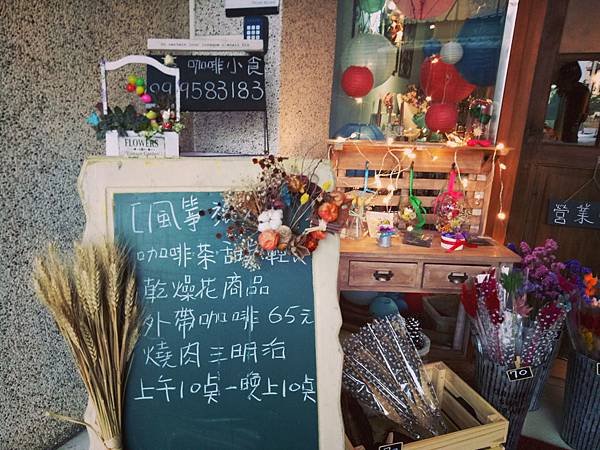 咖啡小食
09 9583183
FLOWERS
[風箏
咖啡茶甜 輕
乾燥花商品
外帶咖啡 65元
燒肉三明治
上午10桌一晚上10桌
營業
70